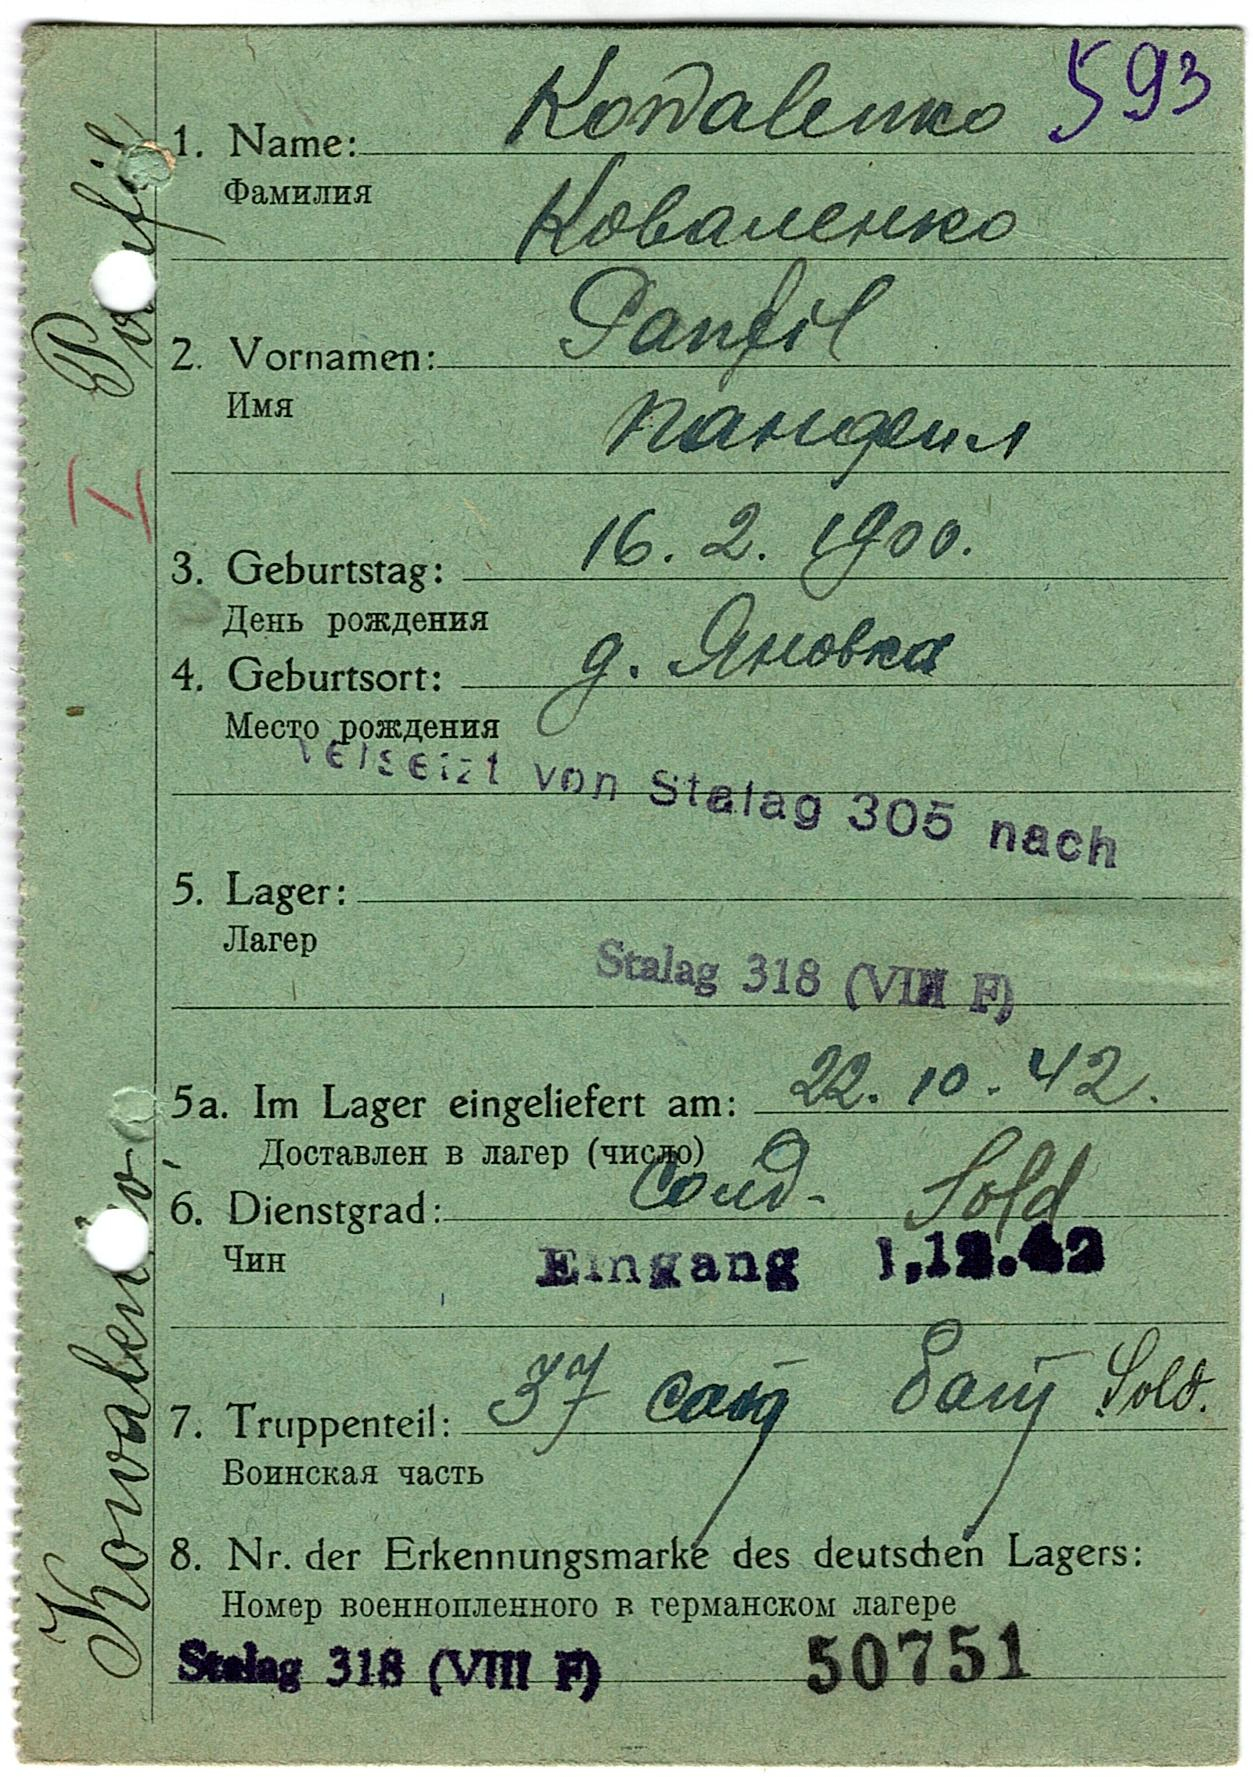 593
1. Name: Kowalenko
Фамилия
Коваленко
2. Vornamen: Panfil
Имя
Панфил
3. Geburtstag: 16. 2. 1900.
День рождения
4. Geburtsort: д. Яновка
Место рождения
Versetzt von Stalag 305 nach
5. Lager:
Лагер
Stalag 318 (VIII F)
5a. Im Lager eingeliefert am: 22. 10. 42.
Доставлен в лагер (число)
6. Dienstgrad: Солд- Sold
Чин
Eingang 1.12.42
7. Truppenteil: 37 сап бат Sold.
Воинская часть
8. Nr. der Erkennungsmarke des deutschen Lagers:
Номер военнопленного в германском лагере
Stalag 318 (VIII F) 50751
Kowalenko Panfil